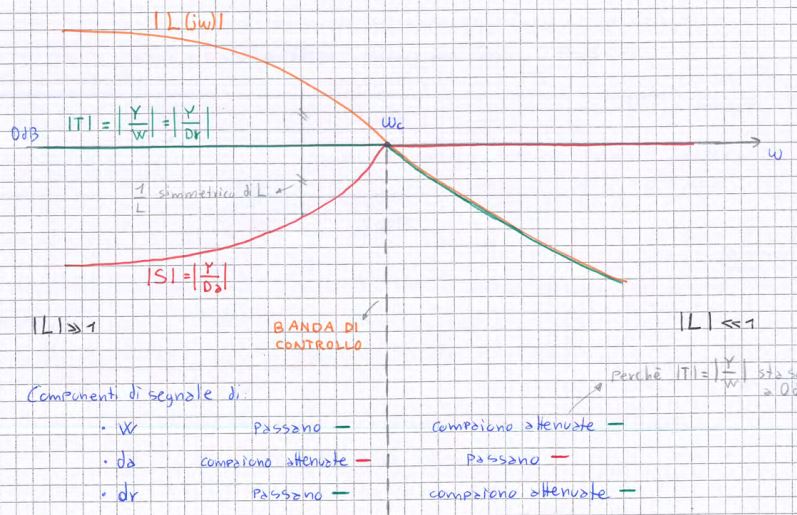 |L(jω)|
|T| = |Y/W| = |Y/Dr|
0dB
ωc
ω
1/L simmetrico di L
|S| = |Y/Da|
|L| >> 1
|L| << 1
BANDA DI
CONTROLLO
Perchè |T| = |Y/W|
Componenti di segnale di
• W passano compaiono attenuate
• da compaiono attenuate passano
• dr passano compaiono attenuate